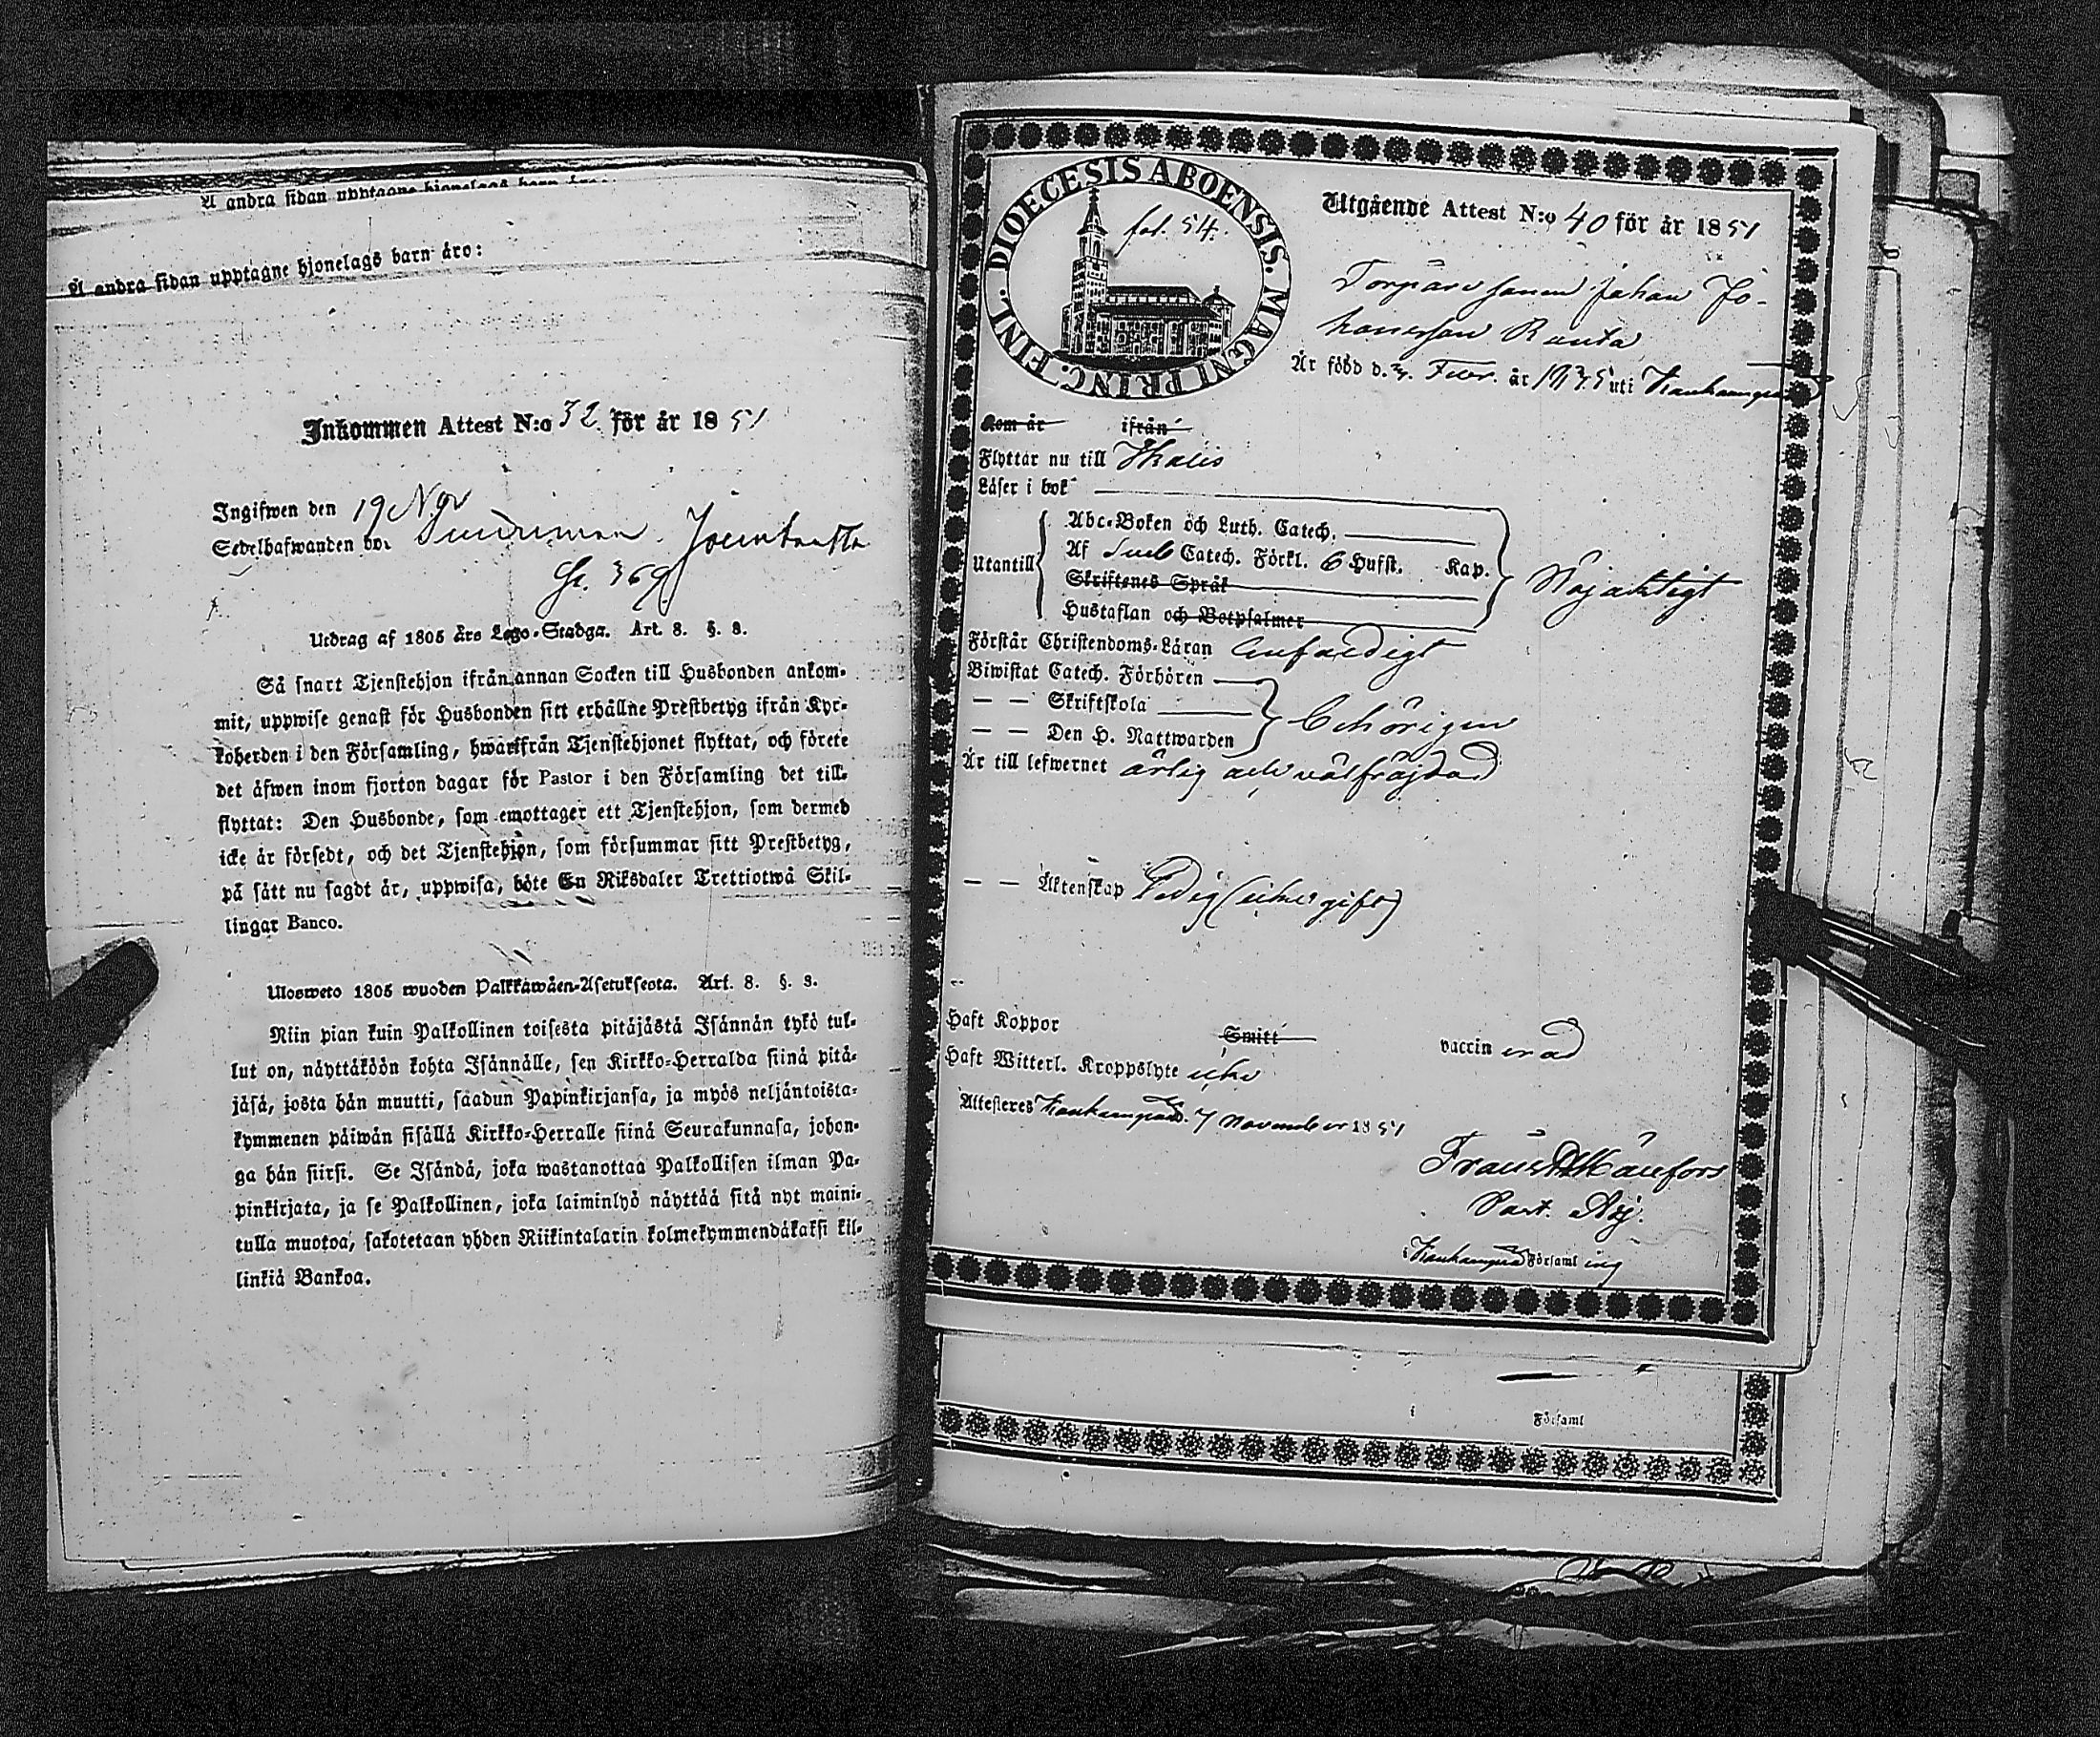 Å andra sidan upptagne hjonelags barn äro:
Å andra sidan upptagne hjonelags barn äro:
Inkommen Attest N:o 32 för år 1851
Ingifwen den 19 Nov
Sedelhafwanden bor
fol. 369
Utdrag af 1805 års Lego-Stadga. Art. 8. §. 3.
Så snart Tjenstehjon ifrån annan Socken till Husbonden ankom-
mit, uppwise genast för Husbonden sitt erhållne Prestbetyg ifrån Kyr-
koherden i den Församling, hwarifrån Tjenstehjonet flyttat, och förete
det äfwen inom fjorton dagar för Pastor i den Församling det till-
flyttat: Den Husbonde, som emottager ett Tjenstehjon, som dermed
icke är försedt, och det Tjenstehjon, som försummar sitt Prestbetyg,
på sätt nu sagdt är, uppwisa, böte En Riksdaler Trettiotwå Skil-
lingar Banco.
Ulosweto 1805 wuoden Palkkawäen-Asetuksesta. Art. 8. §. 3.
Niin pian kuin Palkollinen toisesta pitäjästä Isännän tykö tul-
lut on, näyttäköön kohta Isännälle, sen Kirkko-Herralda siinä pitä-
jäsä, josta hän muutti, saadun Papinkirjansa, ja myös neljäntoista-
kymmenen päiwän sisällä Kirkko-Herralle siinä Seurakunnasa, johon-
ga hän siirsi. Se Isändä, joka wastanottaa Palkollisen ilman Pa-
pinkirjata, ja se Palkollinen, joka laiminlyö näyttää sitä nyt maini-
tulla muotoa, sakotetaan yhden Riikintalarin kolmekymmendäkaksi kil-
linkiä Bankoa.
DIOECESIS ABOENSIS. MAGNI PRINC. FINL.
fol. 54.
Utgående Attest N:o 40 för år 1851
Torparesonen Johan Jo-
hansson Ranta
Är född d. 3. Febr. år 1835 uti Kankaanpää
Kom år ifrån
Flyttar nu till Ikalis
Läser i bok
Utantill
Abc-Boken och Luth. Catech.
Af Sveb Catech. Förkl. 6 Hufst. Kap.
Skriftenes Språk
Hustaflan och Botpsalmer
Nöjaktigt
Förstår Christendoms-Läran Enfaldigt
Biwistat Catech. Förhören
— — Skriftskola
— — Den H. Nattwarden
behörigen
Är till lefwernet ärlig och välfräjdad
— — Äktenskap Ledig (icke gift)
Haft Koppor Smitt vaccinerad
Haft Witterl. Kroppslyte icke
Attesteres Kankaanpää d. 7 November 1851
Frans M Känfors
Past. Adj.
i Kankaanpää Församling
i Församl